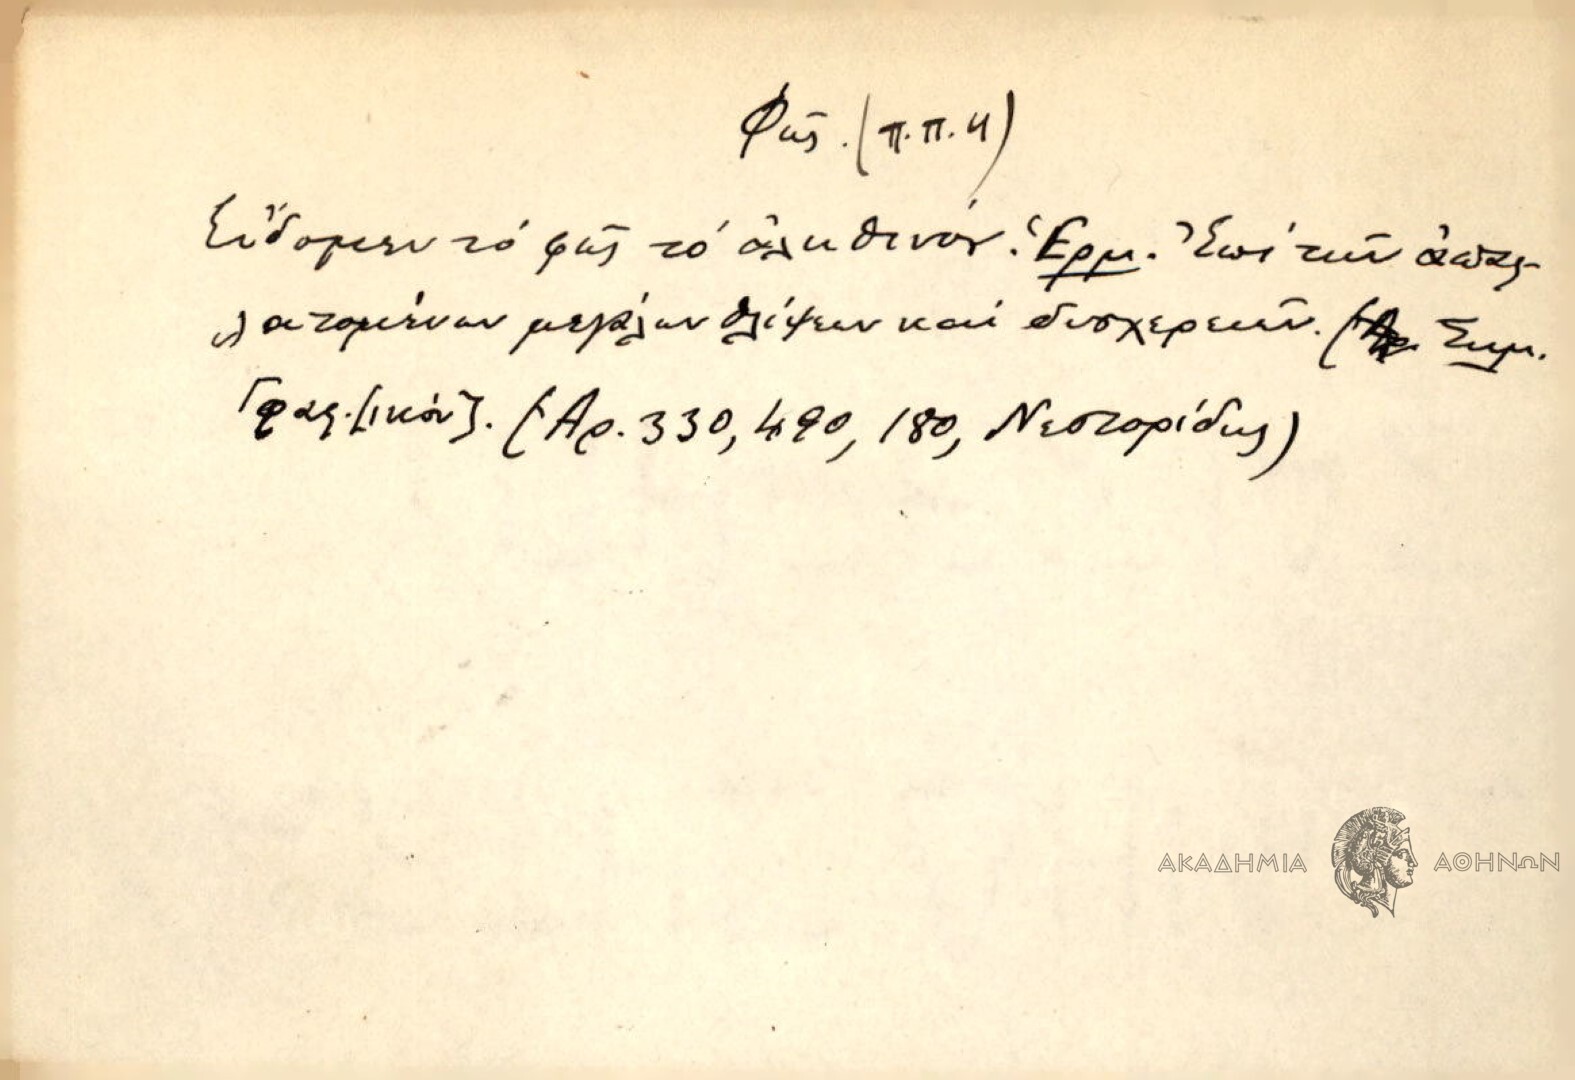 Φῶς. (π.π. 4)
Εἴδομεν τό φῶς τό ἀληθινόν. Ἑρμ. Ἐπί τῶν ἀπαλ-
λατομένων μεγάλων θλίψεων καί δυσχερειῶν. ( Σημ.
(Ἀρ. 330, 490, 180, Νεστορίδης)
ΑΚΑΔΗΜΙΑ ΑΘΗΝΩΝ